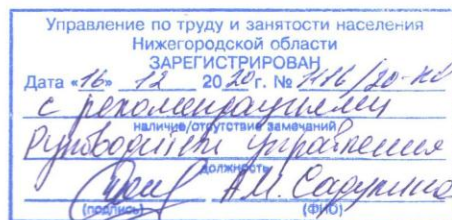 Управление по труду и занятости населения
Нижегородской области
ЗАРЕГИСТРИРОВАН
Дата «16» 12 2020 г. №
с рекомендациями
наличие/отсутствие замечаний
Руководитель управления
должность
А.М. Садулина
(подпись) (ФИО)